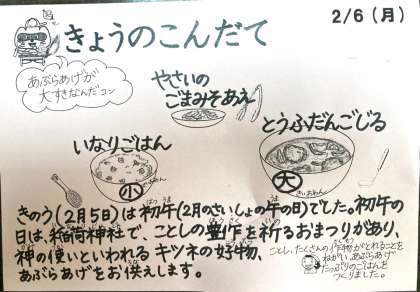 2/6(月)
きょうのこんだて
あぶらあげが
大すきなんだコン
やさいの
ごまみそあえ
いなりごはん
小
とうふだんごじる
大
きのう(2月5日)は初午(2月のさいしょの午の日)でした。初午の
日は、稲荷神社で、ことしの豊作を祈るおまつりがあり、
神の使いといわれるキツネの好物、
あぶらあげをお供えします。
ことし、たくさんの作物がとれることを
ねがい、あぶらあげ
たっぷりのごはんを
つくりました。